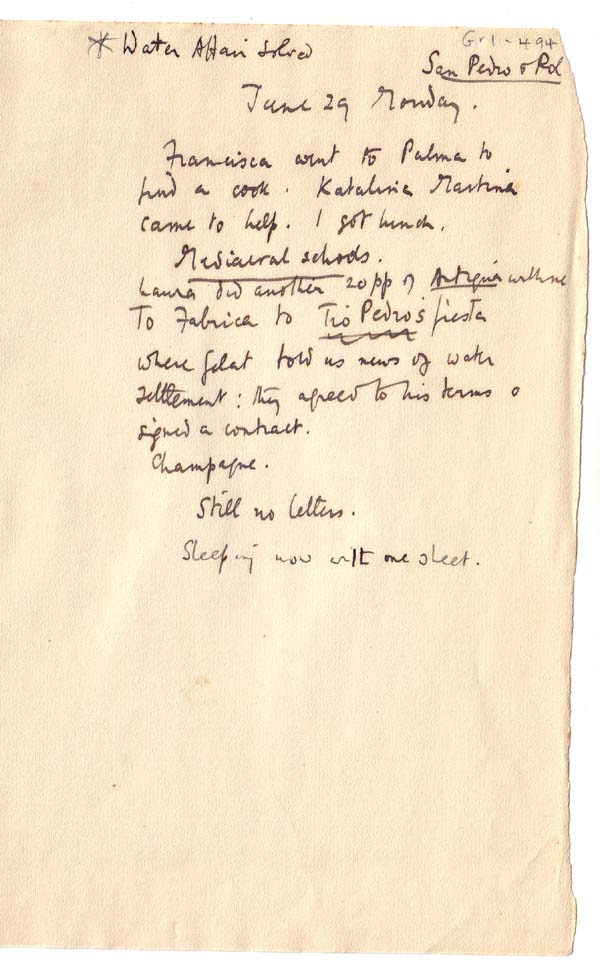 * Water Affair Solved
Gr1-494
San Pedro & Pol
June 29 Monday.
Francisca went to Palma to
find a cook. Katalina Martina
came to help. I got lunch.
Mediaeval schools.
Laura did another 20 pp of Antigua with me
To Fabrica to Tio Pedro's fiesta
where Gelat told us news of water
settlement: they agreed to his terms &
signed a contract.
Champagne.
Still no letters.
Sleeping now with one sheet.